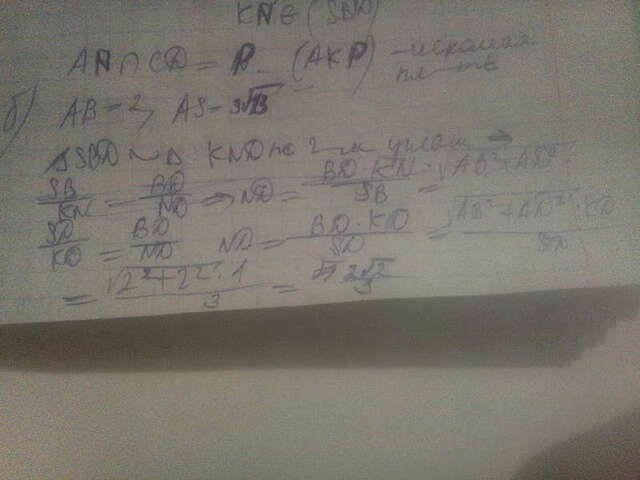 KN ∈ (SBD)
AN ∩ CD = P. (AKP) – искомая
пл-ть
б) AB = 2, AS = 3√13
ΔSBD ~ Δ KND по 2-м углам ⇒
SB/KN = BD/ND ⇒ ND = BD · KN/SB = √AB² + AD² ·
SD/KD = BD/ND ND = BD · KD/SD = √AB² + AD² · KD/SD
= √2² + 2² · 1/3 = 2√2/3